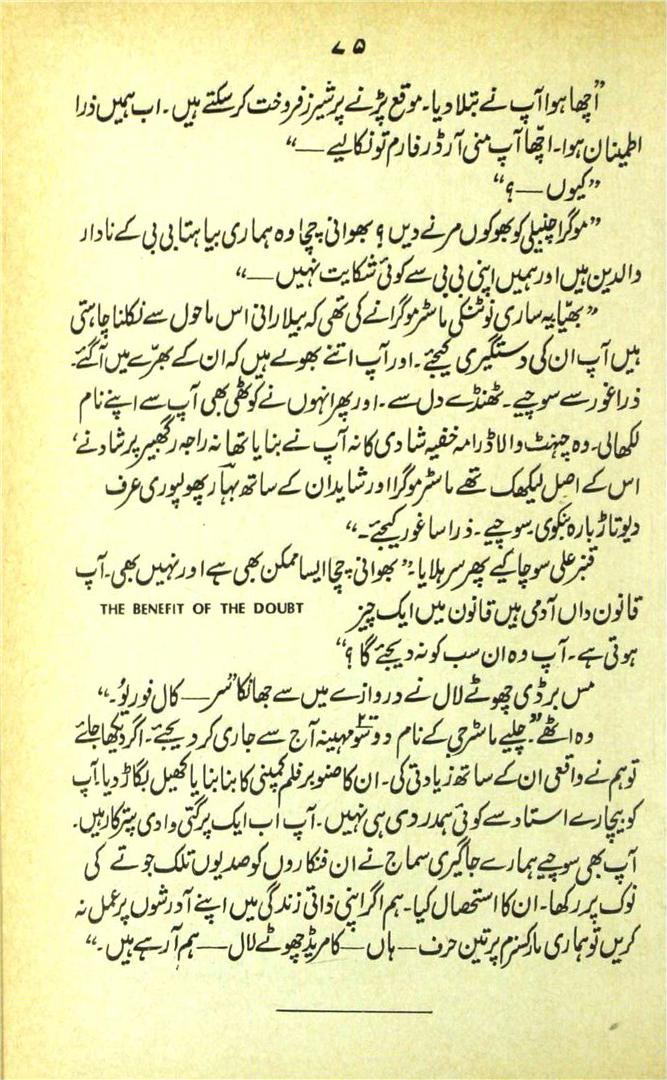 ۷۵
”اچھا ہوا آپ نے بتلا دیا۔ موقع پڑنے پر شیئرز فروخت کر سکتے ہیں۔ اب ہمیں ذرا
اطمینان ہوا۔ اچّھا آپ منی آرڈر فارم تو نکالیے —“
”کیوں — ؟“
”موگرا چنبیلی کو بھوکوں مرنے دیں؟ بھوانی چچا وہ ہماری بیاہتا بی بی کے نادار
والدین ہیں اور ہمیں اپنی بی بی سے کوئی شکایت نہیں —“
”بھیّا یہ ساری نوٹنکی ماسٹر موگرا نے کی تھی کہ بیلا رانی اس ماحول سے نکلنا چاہتی
ہیں آپ ان کی دستگیری کیجئے۔ اور آپ اتنے بھولے ہیں کہ ان کے بھرّے میں آ گئے۔
ذرا غور سے سوچیے۔ ٹھنڈے دل سے۔ اور پھر انہوں نے کوٹھی بھی آپ سے اپنے نام
لکھالی۔ وہ چہنٹ والا ڈرامہ خفیہ شادی کا نہ آپ نے بنایا تھا نہ راجہ رگھبیر پرشاد نے،
اس کے اصل لیکھک تھے ماسٹر موگرا اور شاید ان کے ساتھ بہار پھولپوری عرف
دیوتا ژبارہ بنکوی۔ سوچیے۔ ذرا سا غور کیجئے۔“
قنبر علی سوچا کیے پھر سر ہلایا۔ ”بھوانی چچا ایسا ممکن بھی ہے اور نہیں بھی۔ آپ
قانون داں آدمی ہیں قانون میں ایک چیز THE BENEFIT OF THE DOUBT
ہوتی ہے۔ آپ وہ ان سب کو نہ دیجئے گا؟“
مس برڈی چھوٹے لال نے دروازے میں سے جھانکا ”سر — کال فور یوُ۔“
وہ اٹھے ”چلیے ماسٹر جی کے نام دو سو مہینہ آج سے جاری کر دیجئے۔ اگر دیکھا جائے
تو ہم نے واقعی ان کے ساتھ زیادتی کی۔ ان کا صنوبر فلم کمپنی کا بنا بنایا کھیل بگاڑ دیا۔ آپ
کو بیچارے استاد سے کوئی ہمدردی ہی نہیں۔ آپ اب ایک پرگتی وادی پترکار ہیں۔
آپ بھی سوچیے ہمارے جاگیری سماج نے ان فنکاروں کو صدیوں تلک جوتے کی
نوک پر رکھا۔ ان کا استحصال کیا۔ ہم اگر اپنی ذاتی زندگی میں اپنے آدرشوں پر عمل نہ
کریں تو ہماری مارکسزم پر تین حرف — ہاں — کامریڈ چھوٹے لال — ہم آ رہے ہیں۔“